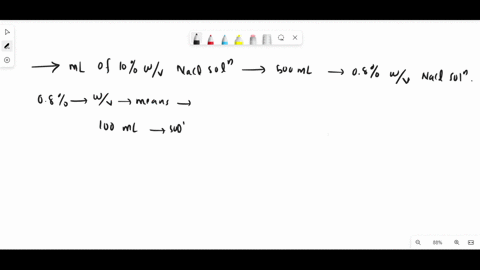 → mL of 10% w/v Nacl solⁿ → 500 mL → 0.8% w/v Nacl solⁿ.
0.8% → w/v → means →
100 mL → sol'
88%